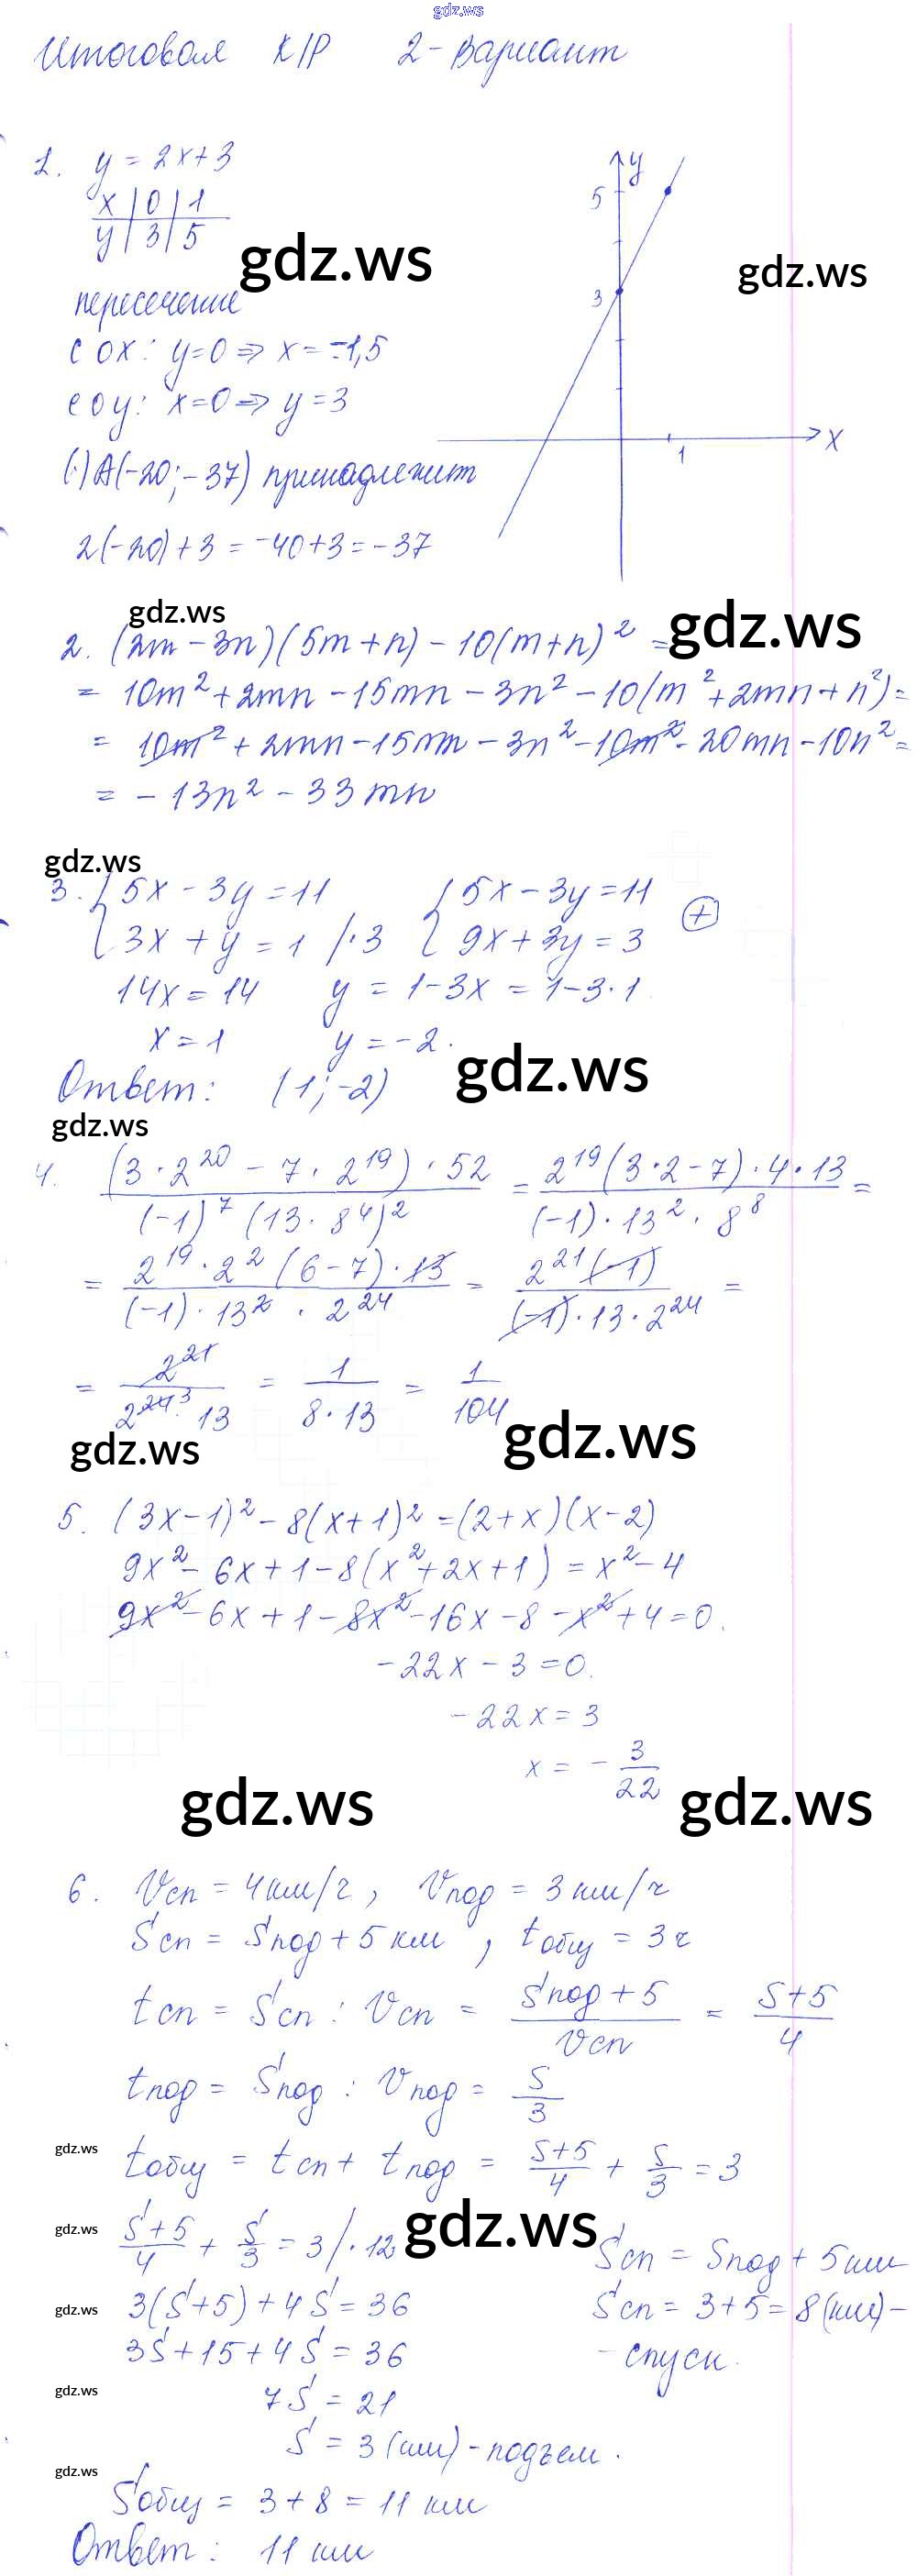 gdz.ws
Итоговая К/Р 2-вариант
1. y = 2x+3
x | 0 | 1
y | 3 | 5
gdz.ws
gdz.ws
пересечение
с OX: y=0 ⇒ x = -1,5
с OY: x=0 ⇒ y = 3
(·) A(-20; -37) принадлежит
2(-20)+3 = -40+3 = -37
y
5
3
1
X
gdz.ws
gdz.ws
2. (2m-3n)(5m+n) - 10(m+n)² =
= 10m² + 2mn - 15mn - 3n² - 10(m² + 2mn + n²) =
= 10m² + 2mn - 15mn - 3n² - 10m² - 20mn - 10n² =
= -13n² - 33mn
gdz.ws
3. { 5x - 3y = 11 { 5x - 3y = 11
{ 3x + y = 1 /·3 { 9x + 3y = 3 (+)
14x = 14 y = 1-3x = 1-3·1
x = 1 y = -2.
gdz.ws
Ответ: (1; -2)
gdz.ws
4. (3·2²⁰ - 7·2¹⁹)·52 / (-1)⁷(13·8⁴)² = 2¹⁹(3·2-7)·4·13 / (-1)·13²·8⁸ =
= 2¹⁹·2²(6-7)·13 / (-1)·13²·2²⁴ = 2²¹(-1) / (-1)·13·2²⁴ =
= 2²¹ / 2²⁴ ³·13 = 1 / 8·13 = 1 / 104
gdz.ws
gdz.ws
5. (3x-1)² - 8(x+1)² = (2+x)(x-2)
9x² - 6x + 1 - 8(x² + 2x + 1) = x² - 4
9x² - 6x + 1 - 8x² - 16x - 8 - x² + 4 = 0.
-22x - 3 = 0.
-22x = 3
x = - 3/22
gdz.ws
gdz.ws
6. Vсп = 4 км/ч, Vпод = 3 км/ч
Sсп = Sпод + 5 км, tобщ = 3 ч
tсп = Sсп : Vсп = Sпод + 5 / Vсп = S+5 / 4
tпод = Sпод : Vпод = S/3
gdz.ws
tобщ = tсп + tпод = S+5 / 4 + S/3 = 3
gdz.ws
S+5 / 4 + S/3 = 3 /·12
gdz.ws
Sсп = Sпод + 5 км
gdz.ws
3(S+5) + 4S = 36
Sсп = 3+5 = 8 (км) -
3S + 15 + 4S = 36
- спуск.
gdz.ws
7S = 21
S = 3 (км) - подъем.
gdz.ws
Sобщ = 3 + 8 = 11 км
Ответ: 11 км